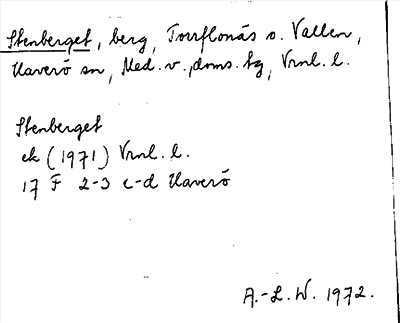 Stenberget, berg, Torrflonäs o. Vallen,
Haverö sn, Med. v., doms. tg, Vrnl. l.
Stenberget
ek (1971) Vrnl. l.
17 F 2-3 c-d Haverö
A.-L. W. 1972.